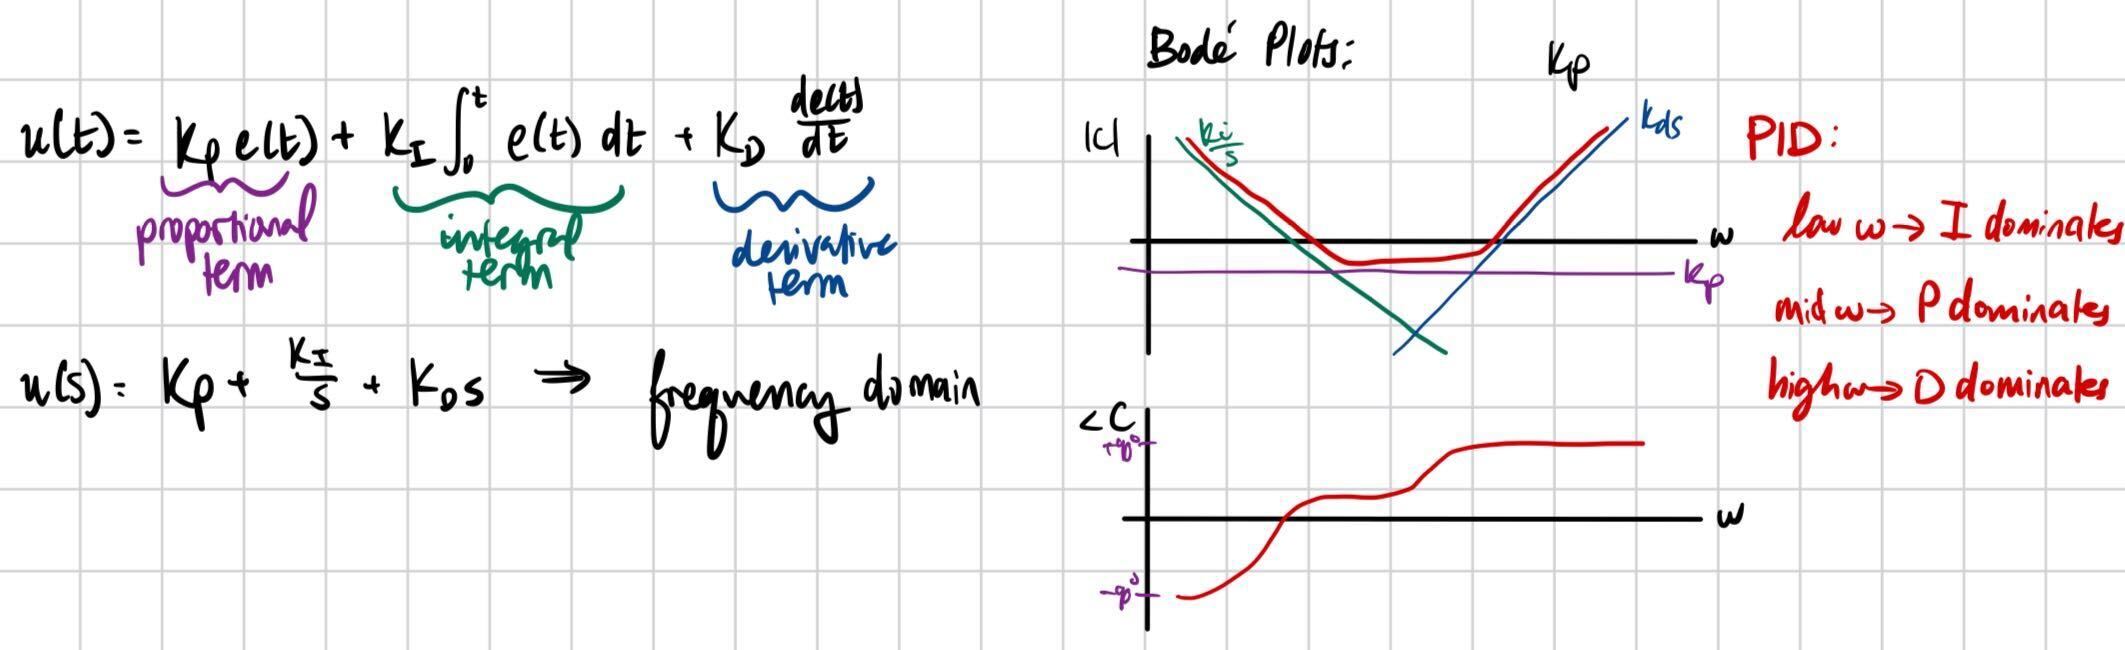 u(t) = Kp e(t) + K_I ∫₀ᵗ e(t) dt + K_D de(t)/dt
proportional term
integral term
derivative term
u(s) = Kp + K_I/s + K_D s ⇒ frequency domain
Bodé Plots:
Kp
|C|
Ki/s
Kds
w
Kp
<C
+90°
-90°
w
PID:
low w → I dominates
mid w → P dominates
high w → D dominates